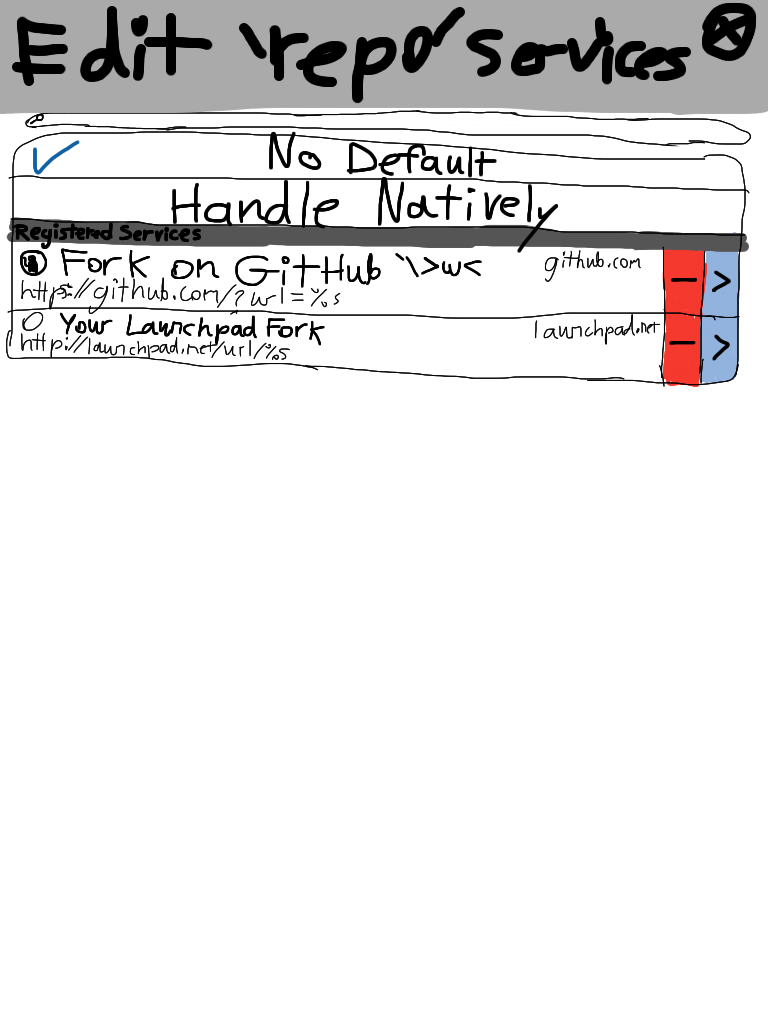 Edit 'repo' services
No Default
Handle Natively
Registered Services
Fork on GitHub \\>w< github.com
https://github.com/?url=%s
Your Launchpad Fork launchpad.net
http://launchpad.net/url/%s